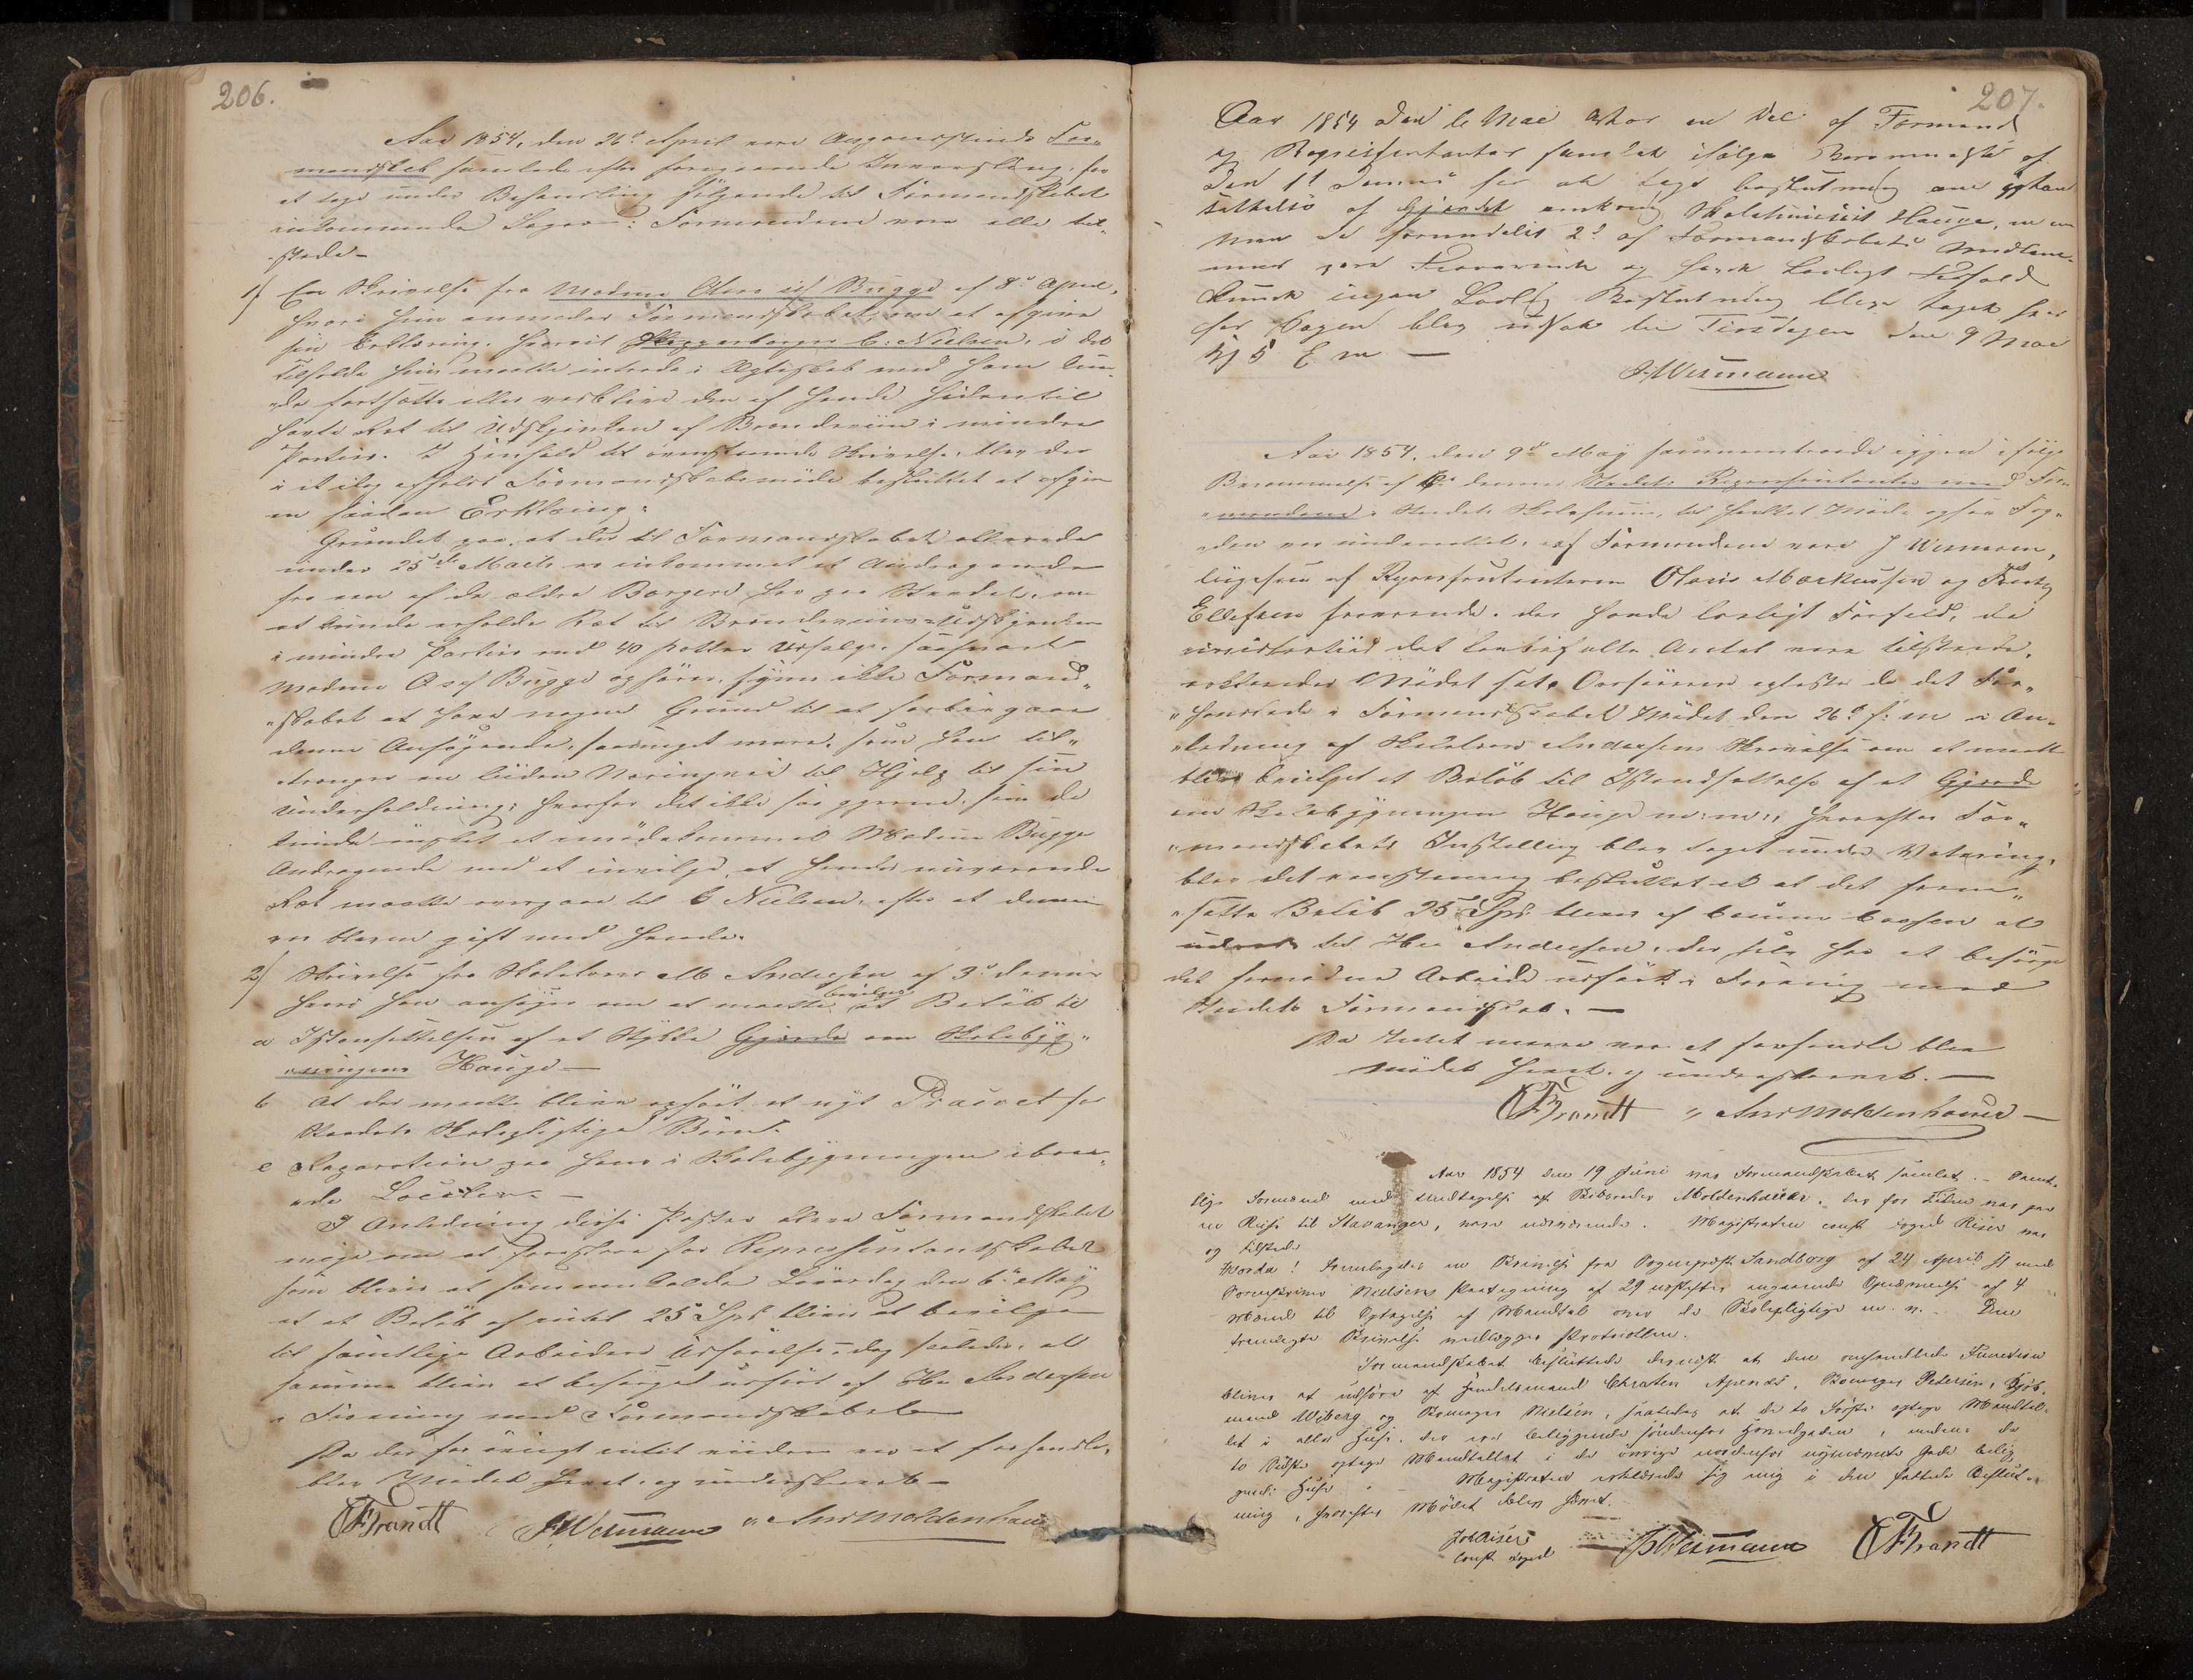 206.
Aar 1854, den 26de April vare Augvaldsnæs For„
mandskab samlede efter foregaaende for
at tage under Behandling følgende til Formandskabet
indkommende Sager. Formændene vare alle til„
stede –
1) En Skrivelse fra Madme Olava sal Bugge af 8de April,
hvori hun anmoder Formandskabet, om at afgive
sin Erklæring, hvorvit Skipperborger C: Nielsen, i det
Tilfælde hun maatte indtræde i Ægteskab med ham kun„
de fortsætte eller vedblive den af hende hidentil
havte Ret til Udskjenken af Brændeviin i mindre
Partier. I Henhold til ovenstaaende Skrivelse blev der
i et idag afholdt Formandskabsmøde besluttet at afgive
en saadan Erklæring:
Grundet paa, at der til Formandskabet allerede
under 25de Marts er indkommet et Andragende
fra een af de ældre Borgere her paa Stedet, om
at kunde erholde Ret til Brændeviins-Udskjenken
i mindre Partier end 40 Potter Udsalg, saasnart
Madme O sal Bugge ophører, synes ikke Formand„
„skabet at have nogen Grund til at forbigaae
denne Ansøgende, saameget mere, som han til„
trænger en liden Næringsvei til Hjelp til sin
Underholdning; hvorfor det ikke saa gjerne, som de
kunde ønsket at imødekomme Madme Bugge
Andragende med at indvilge, at hendes nuværende
Ret maatte overgaae til C Nielsen, efter at denne
er bleven gift med hende.
2) Skrivelse fra Skolelærer M Andersen af 3de dennes
hvori han ansøger om at maatte bevilges et Beløb til
a Istandsættelsen af et Stykke Gjærde om Skolebyg„
„ningens Hauge –
b At der maatte blive opført et nyt Privet for
Stedets Skolepligtige Børn.
c Reparation paa hans i Skolebygningen iboe„
„de Locale. –
I Anledning disse Poster bleve Formandskabet
enige om at foreslaae for Repræsentantskabet
som bliver at sammenkalde Løverdag den 6te May
at et Beløb af indtil 25 Spd bliver at bevilge
til samtlige Arbeiders Udførelse, dog saaledes, at
samme bliver at besørget udført af Hr Andersen
i Forening med Formandskabet
Da der for øvrigt intet videre var at forhandle,
blev Mødet hævet, og underskrevet –
CFBrandt JWermann „ Ans Moldenhauer
207.
Aar 1854 den 6 Mai var en Del af Formænd
og Repræsentanter samlet ifølge Berammelse af
den 1st dennes for at tage beslutning om istand
sættelse af Gjerdet omkring Skolehusets Hauge, m m
men da 2de af Formandskabets Medlem„
mer vare Fraværende og havde Lovligt Forfald
kunde ingen Lovlig Beslutning blive taget her
for Sagen blev udsat til Tirsdagen den 9 Mai
Kl 5 E m –
J Wermann
Aar 1854, den 9de May sammentraadte igjen ifølge
Berammelse af 6te dennes Stedets Repræsentanter med For„
„mændene i Stedets Skolehuus, til hvilket Møde ogsaa Fog„
„den var underrettet. Af Formændene vare J Wermann,
liigesom af Repræsentanterne Olaus Markussen og
Ellefsen fraværende, der havde lovligt Forfald, da
imidlertid det lovbefalte Antal vare tilstæde,
Mødet sat. Ordføreren oplæste da det For„
„handlede i Formandskabet Mødet den 26de f: m i An„
„ledning af Skolelærer Andersens Skrivelse om at maatte
blive bevilget et Beløb til Istandsættelse af et Gjerde
om Skolebygningen Hauge m: m:, hvorefter For„
„mandskabets Indstilling blev taget under Votering,
blev det eenstemmig besluttet at det fore„
„satte Beløb 25 Spd bliver af Communecassen at
udrede til Hr Andersen, der selv har at besørge
det fornødne Arbeide udført i Forening med
Stedets Formandskab. –
Da Intet mere var at forhandle blev
Mødet hævet og underskrevet. –
CFBrandt „ Ans Moldenhauer –
Aar 1854 den 19 Juni var Formandskabet samlet. – Samt„
lige Formænd med Undtagelse af Skibsreder Moldenhauer, der for Tiden var paa
en Reise til Stavanger, vare nærværende. Magistraten const Foged Riser var
og tilstede
Hvorda! fremlagdes en Skrivelse fra Sogneprest Sandberg af 24 April sl med
Sorenskriver Nielsens Paategning af 29 angaaende Opnævnelse af 4
Mænd til Optagelse af Mandtal over de Skolepligtige m. v. – Den
fremlagte Skrivelse vedlægges Protocollen.
Formandskabet besluttede dernæst at den omhandlede Function
bliver at udføre af Handelsmand Chrsten Apenæs, Skomager Pedersen, Kjøb„
mand Wiborg og Skomager Nielsen, saaledes at de to Første optage Mandtal„
let i alle Huse, der ere beliggende søndenfor Hovedgaden, medens de
to Sidste optage Mandtallet i de øvrige nordenfor nysnævnte Gade belig„
gende Huse. – Magistraten erklærede sig enig i den fattede Beslut„
ning, hvorefter Mødet blev hævet.
Joh Riser
const Foged JWermann CFBrandt